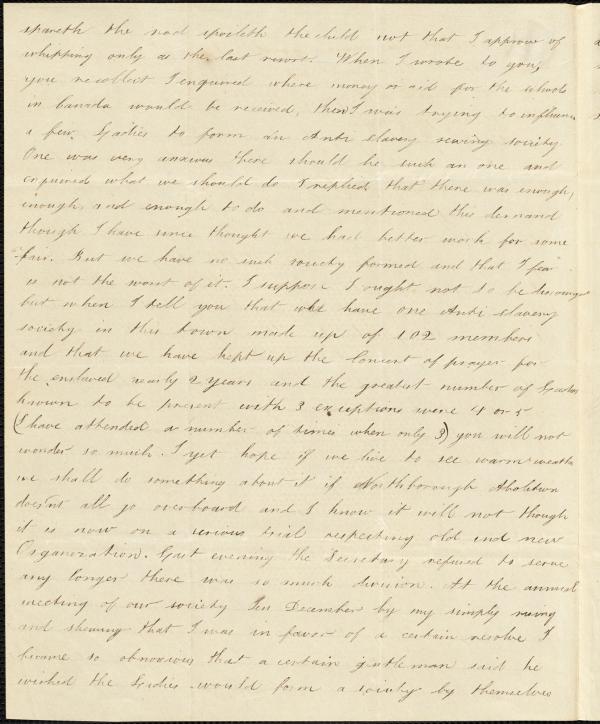 spareth the rod spoileth the child not that I approve of
whipping only as the last resort. When I wrote to you,
you recollect I enquired where money or aid for the schools
in Canada would be received, then I was trying to influence
a few Ladies to form an Anti slavery sewing society
One was very anxious there should be such an one and
enquired what we should do I replied that there was enough,
enough, and enough to do and mentioned this demand
though I have since thought we had better work for some
fair. But we have no such society formed and that I fear
is not the worst of it. I suppose I ought not to be discouraged
but when I tell you that we have one Anti slavery
society in this town made up of 102 members
and that we have kept up the Concert of prayer for
the enslaved nearly 2 years and the greatest number of Ladies
known to be present with 3 exceptions were 4 or 5
(I have attended a number of times when only 3) you will not
wonder so much. I yet hope if we live to see warm weather
we shall do something about it if Northborough Abolition
doesn't all go overboard and I know it will not though
it is now on a serious trial respecting old and new
Organization. Last evening the Secretary refused to serve
any longer there was so much division. At the annual
meeting of our society in December by my simply rising
and shewing that I was in favor of a certain resolve I
became so obnoxious that a certain gentleman said he
wished the Ladies would form a society by themselves